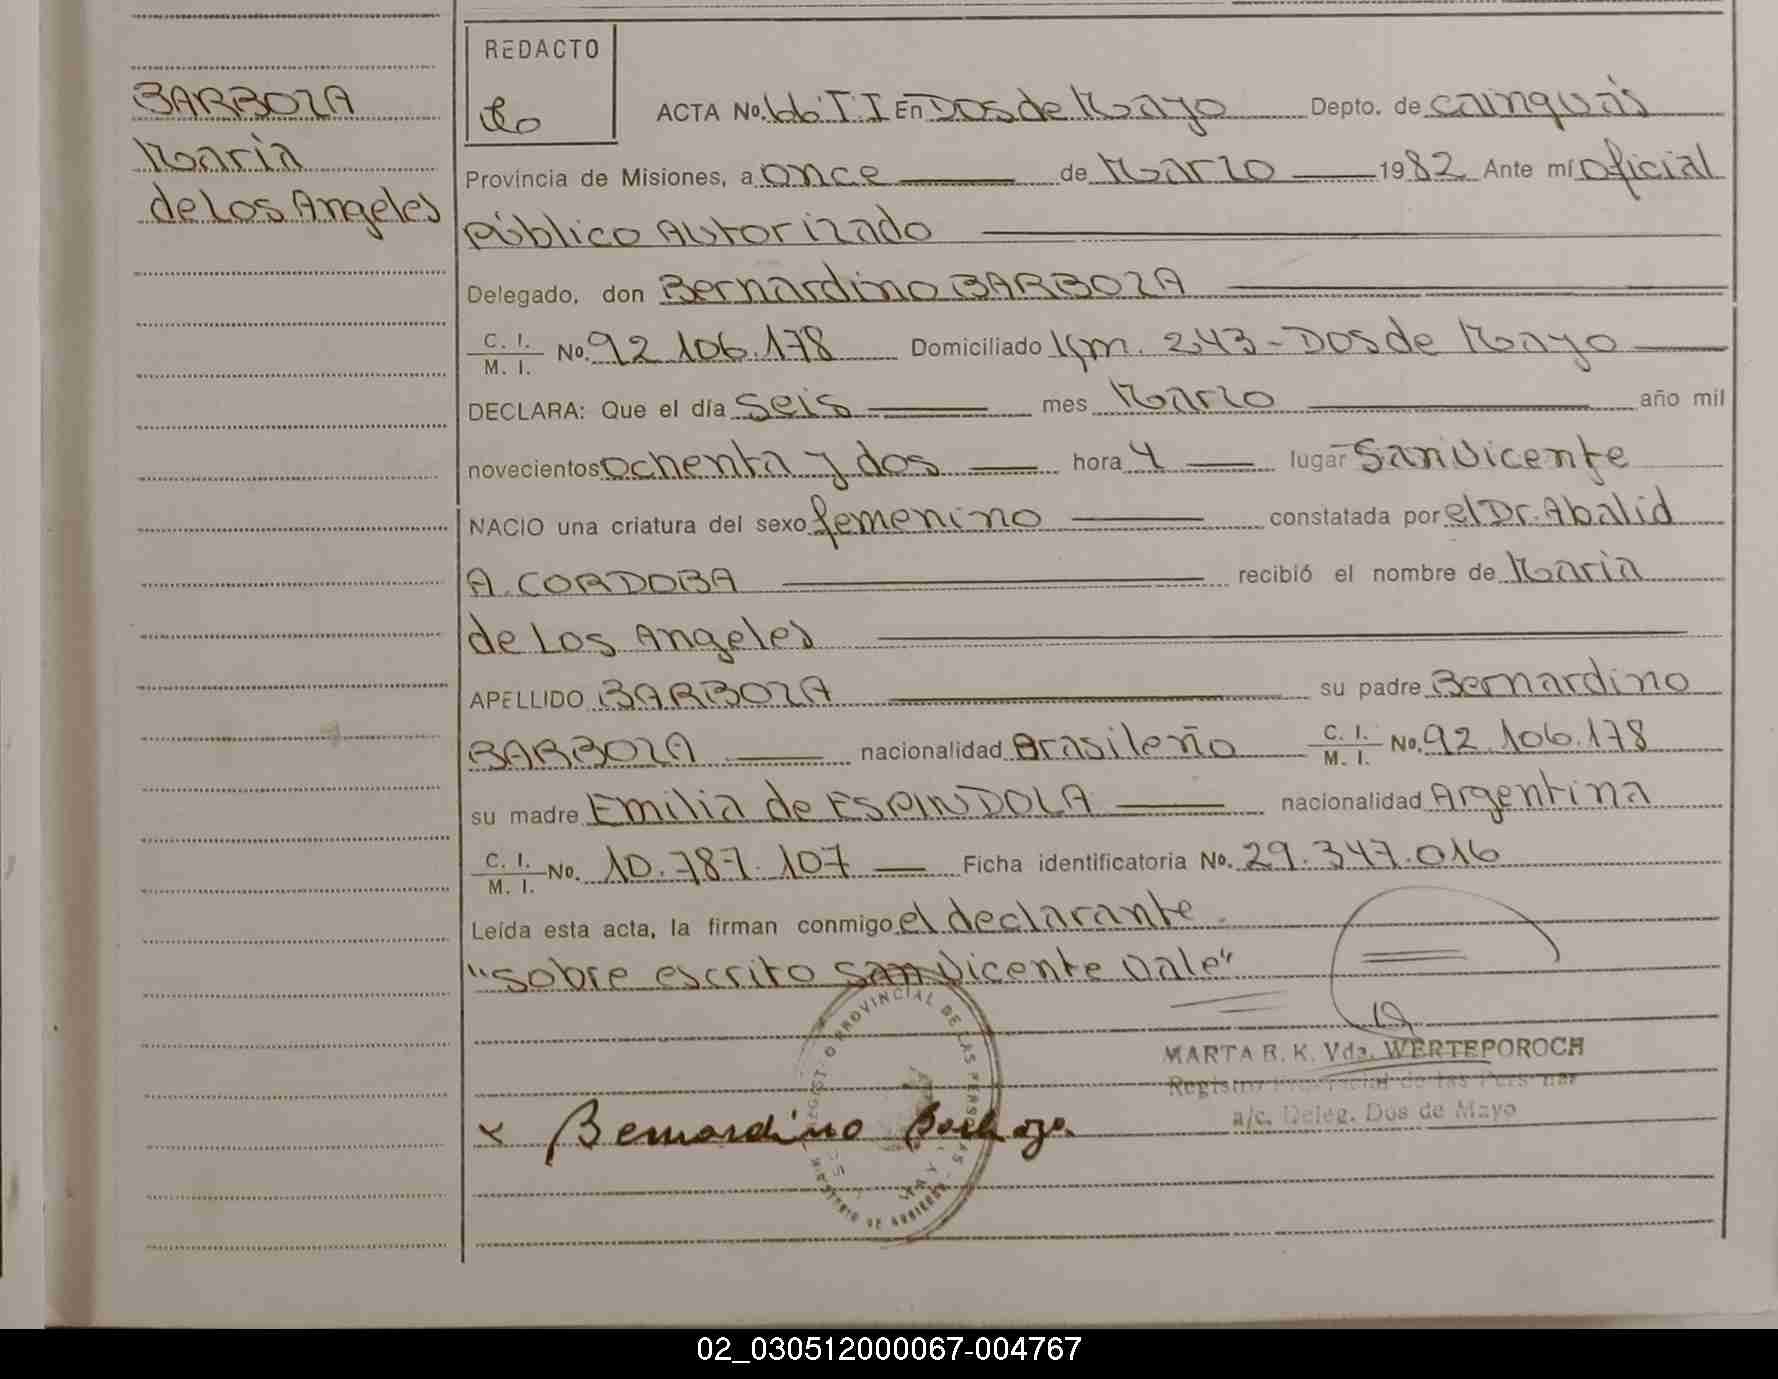 BARBOZA
Maria
de Los Angeles
REDACTO
ACTA No. 66 T I En Dos de Mayo Depto. de cainguás
Provincia de Misiones, a once de Marzo 1982 Ante mí oficial
público Autorizado
Delegado, don Bernardino BARBOZA
C. I.
M. I. No. 92.106.178 Domiciliado Km. 243 - Dos de Mayo
DECLARA: Que el día seis mes Marzo año mil
novecientos ochenta y dos hora 4 lugar San Vicente
NACIO una criatura del sexo femenino constatada por el Dr. Abalid
A. CORDOBA recibió el nombre de Maria
de Los Angeles
APELLIDO BARBOZA su padre Bernardino
BARBOZA nacionalidad Brasileño C. I.
M. I. No. 92.106.178
su madre Emilia de ESPINDOLA nacionalidad Argentina
C. I.
M. I. No. 10.787.107 Ficha identificatoria No. 29.347.016
Leída esta acta, la firman conmigo el declarante.
"sobre escrito San Vicente Vale"
REGISTRO PROVINCIAL DE LAS PERSONAS
MINISTERIO DE GOBIERNO
MARTA R. K. Vda. WERTEPOROCH
Registro Provincial de las Personas
a/c. Deleg. Dos de Mayo
x Bernardino Barboza
02_030512000067-004767